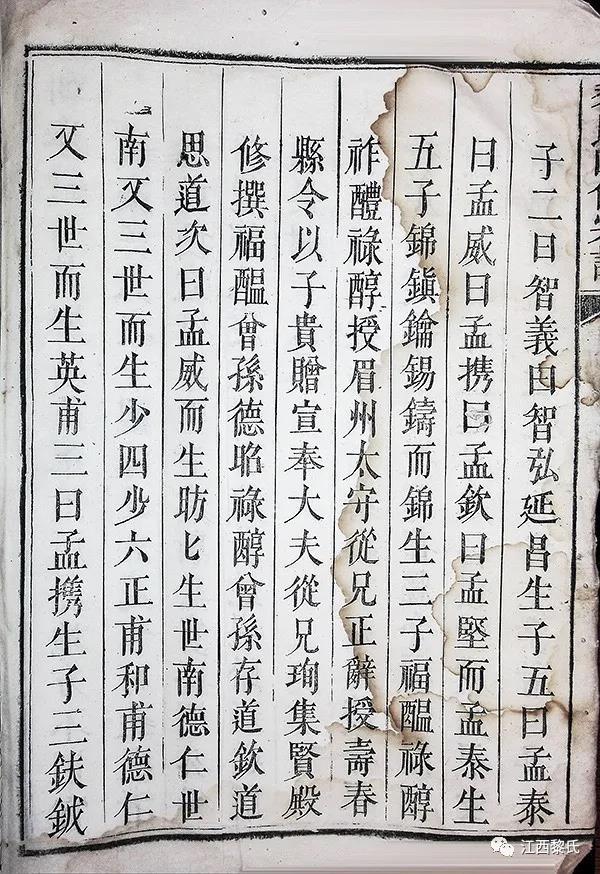 子二曰智義曰智弘延昌生子五曰孟泰
曰孟威曰孟携曰孟欽曰孟堅而孟泰生
五子錦鎮鑰錫鑄而錦生三子福醞祿醇
祚醴祿醇授眉州太守從兄正辭授壽春
縣令以子貴贈宣奉大夫從兄珣集賢殿
修撰福醞曾孫德昭祿醇曾孫存道欽道
思道次曰孟威而生昉匕生世南德仁世
南又三世而生少四少六正甫和甫德仁
又三世而生英甫三曰孟携生子三鈇鉞
江西黎氏